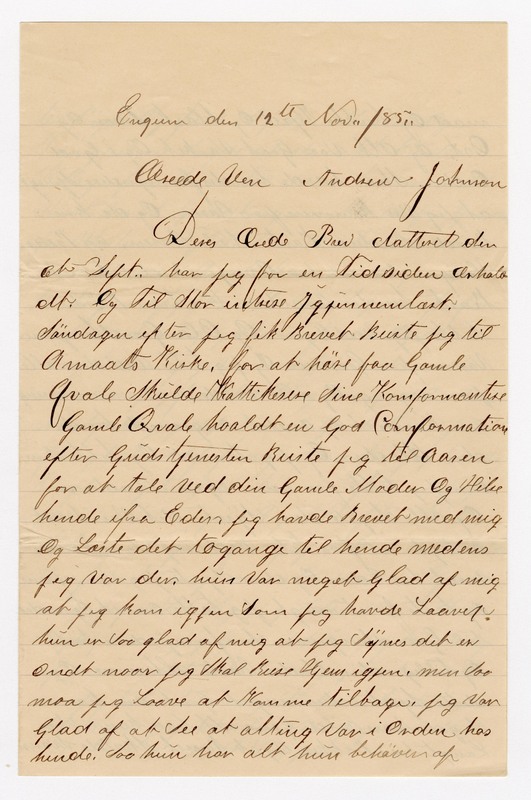 Engum den 12th Nov. 1885.
Ærede Ven Andrew Johnson
Deres Ærede Brev datteret den
Sept. har jeg for en Tid siden
dt. Og Til Stor intrese Igjennemlæst.
Söndagen efter jeg fik Brevet Reiste jeg til
Amaats Kirke, for at höre paa Gamle
Qvale Skulde Kattikesere sine Komformantere
Gamle Qvale hoaldt en God Comformation
efter Gudstjenesten Reiste jeg til Aasen
for at tale ved din Gamle Moder Og Hilse
hende ifra Eder, jeg havde Brevet med mig
Og Læste det togange til hende medens
jeg Var der, hun Var meget Glad af mig
at jeg kom igjen Som jeg havde Laavet.
hun er Soo glad af mig at jeg Synes det er
Ondt naar jeg Skal Reise Hjem igjen, men Soo
maa jeg Laave at Komme tilbage, jeg Var
Glad af at See at alting Var i Orden hos
hende. Soo hun har alt hun behöver af